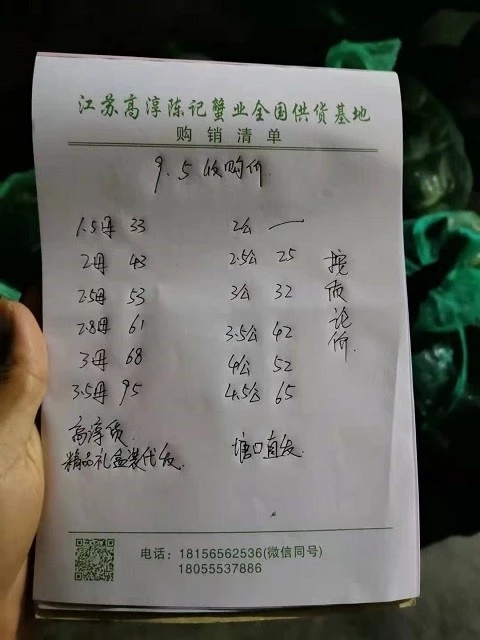 江苏高淳陈记蟹业全国供货基地
购销清单
9.5收购价
1.5母 33
2母 43
2.5母 53
2.8母 61
3母 68
3.5母 95
2公 —
2.5公 25
3公 32
3.5公 42
4公 52
4.5公 65
按质论价
高淳货
精品礼盒装代发
塘口直发
电话：18156562536(微信同号)
18055537886